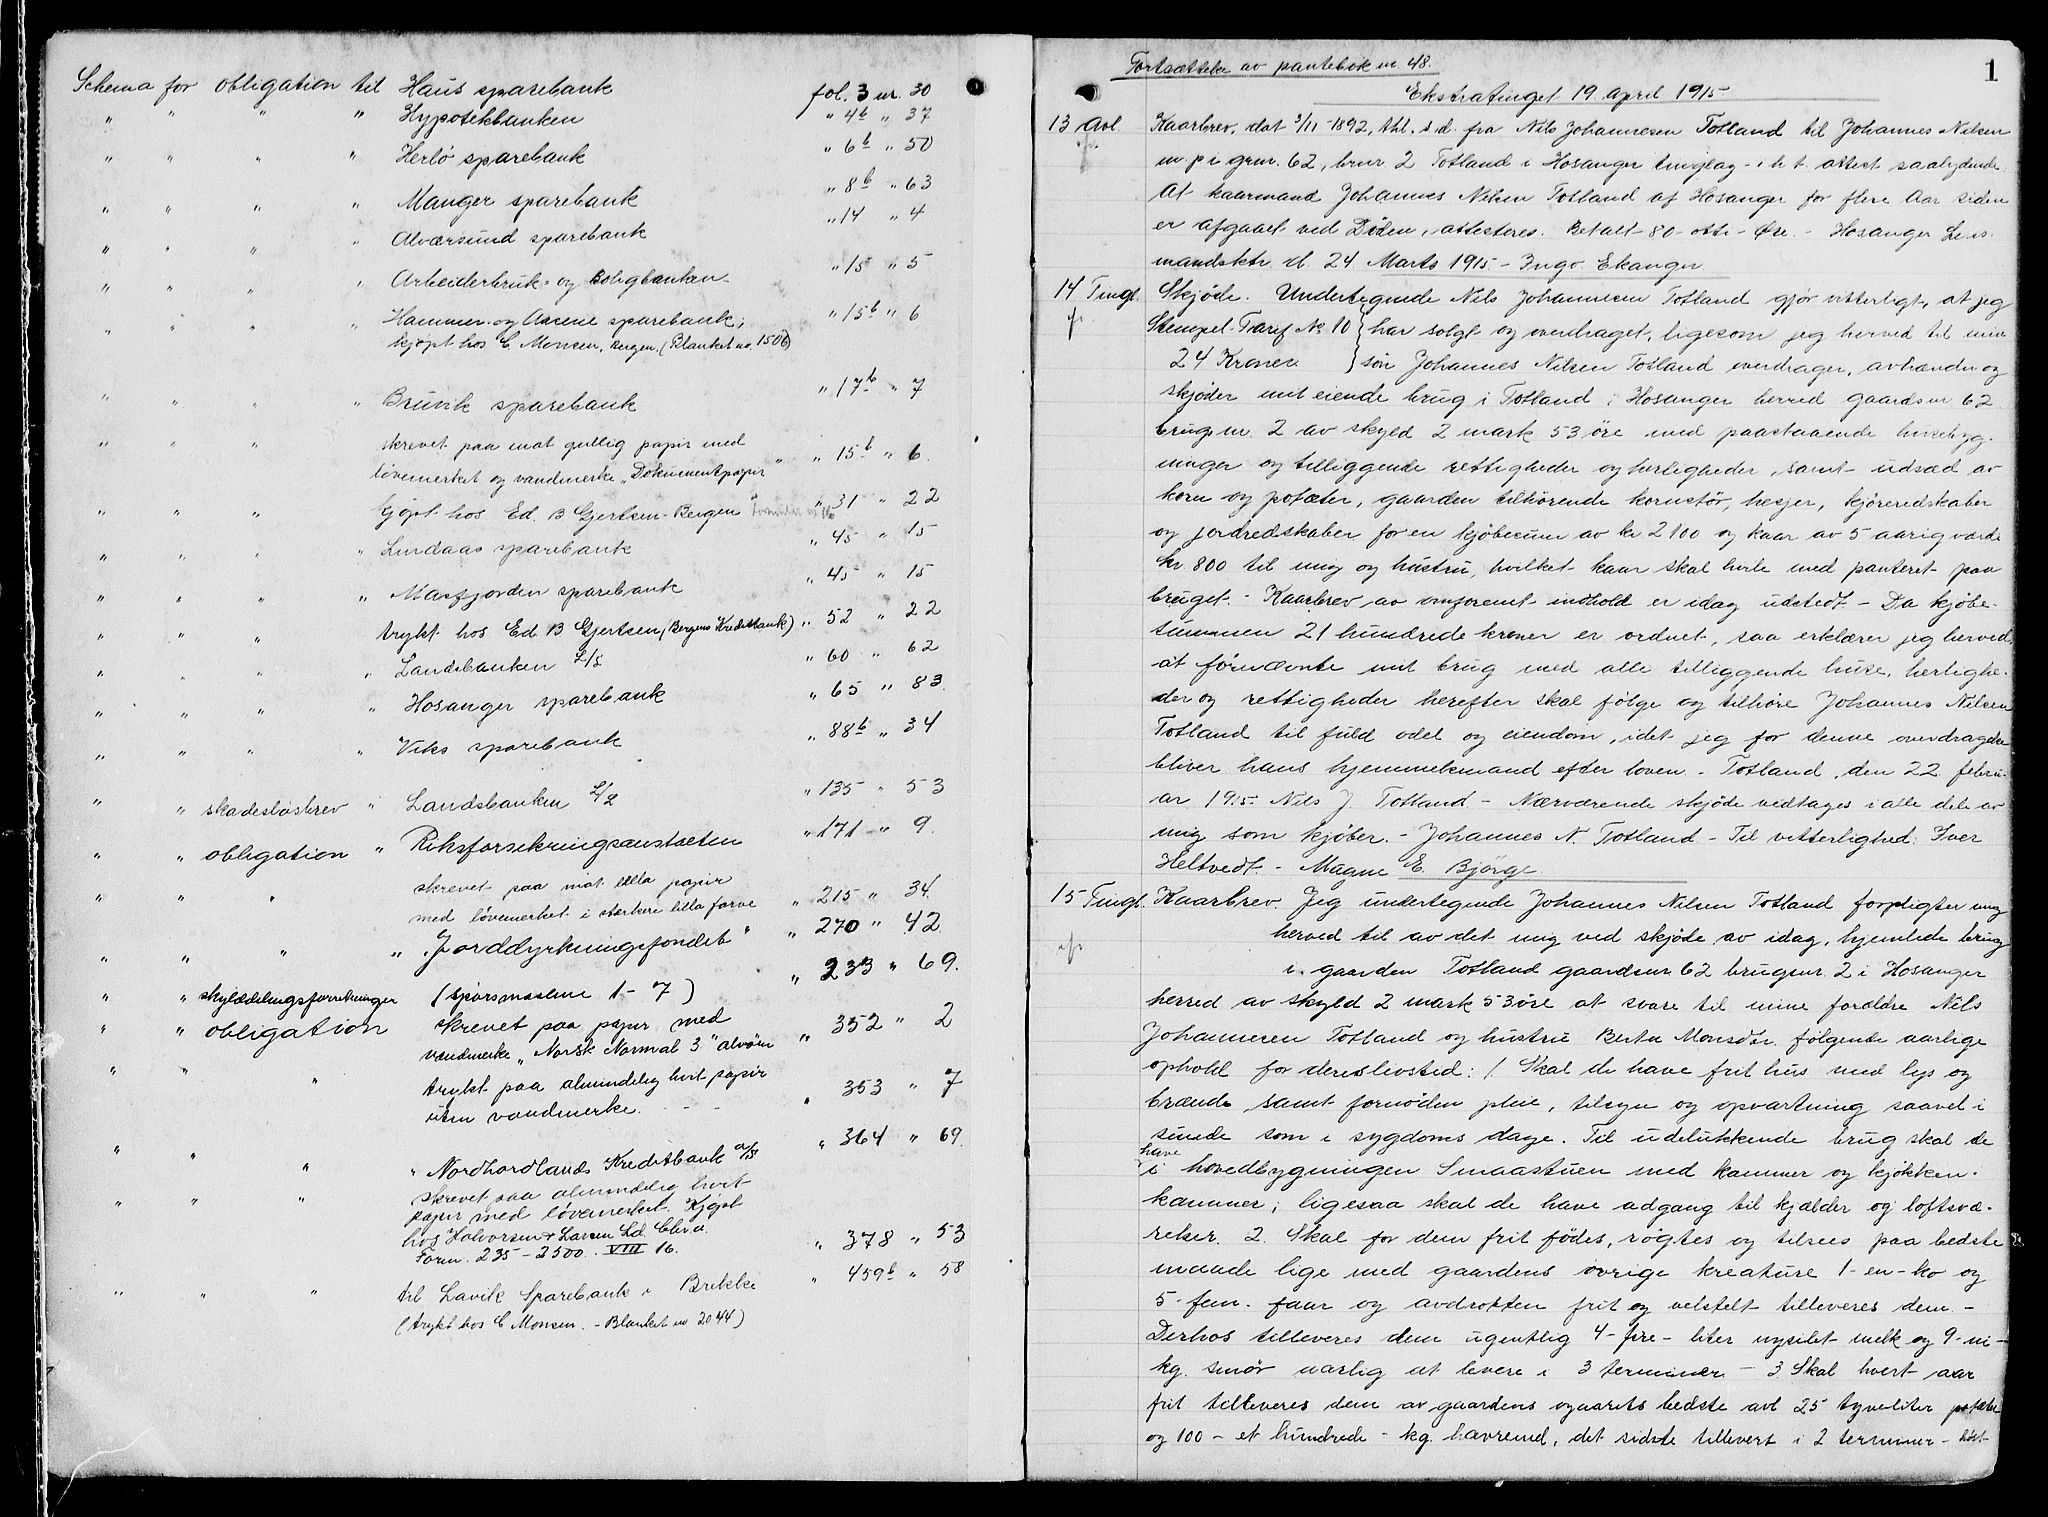 Schema for obligation til Haus sparebank fol. 3 nr. 30
" " " " Hypotekbanken " 4b " 37
" " " " Herlö sparebank " 6b " 50
" " " " Manger sparebank " 8b " 63
" " " " Alværsund sparebank " 14 " 4
" " " " Arbeiderbruk- og Boligbanken " 15 " 5
" " " " Hammer- og Aasene sparebank, " 15b " 6
kjöpt hos C. Monsen, Bergen. (Blanket no. 1506)
" " " " Bruvik sparebank " 17b " 7
" " " skrevet paa mat gullig papir med
lövemerket og vandmerke "Dokumentpapir" " 15b " 6.
" " " kjöpt hos Ed. B Gjertsen Bergen " 31 " 22
" " " " Lindaas sparebank " 45 " 15
" " " " Masfjorden sparebank " 45 " 15
" " " trykt hos Ed B Gjertsen (Bergens Kreditbank) " 52 " 22
" " " " Landsbanken L/S " 60 " 62
" " " " Hosanger sparebank " 65 " 83.
" " " " Viks sparebank " 88b " 34
" " skadeslösbrev " Landsbanken L/2 " 135 " 53
" " obligation " Riksforsikringsanstalten " 171 " 9.
" " " skrevet paa mat lilla papir
med lövemerket i sterkere lilla farve " 215 " 34.
" " " " "Jorddyrkningsfondet" " 270 " 42
" " skylddelingsforretninger (spörsmaalene 1-7) " 233 " 69.
" " obligation skrevet paa papir med
vandmerke "Norsk Normal 3" alvöen " 352 " 2
" " " trykt paa almindelig hvit papir
uten vandmerke. " 353 " 7
" " " " Nordhordlands Kreditbank a/s " 364 " 69.
" " " skrevet paa almindelig hvit
papir med lövemerket. Kjöpt
hos Halvorsen & Larsen Ld. Chr.a.
Form. 235-2500. VIII 16. " 378 " 53
" " " til Lavik Sparebank i Brekke " 459b " 58
(trykt hos C Monsen. - Blanket nr 2044)
1
Fortsættelse av pantebok nr. 48.
Ekstratinget 19 april 1915
13 Avl. Kaarbrev, dat 3/11-1892, thl. s.d. fra Nils Johannesen Totland til Johannes Nilsen
m. p i grnr. 62, brnr 2 Totland i Hosanger tinglag - i h. t. attest saalydende:
At kaarmand Johannes Nilsen Totland af Hosanger for flere Aar siden
er afgaaet ved Döden, attesteres. Betalt 80-otti-Öre. - Hosanger Lens-
mandsktr. d. 24 Marts 1915 - Ingv. Ekanger
14 Tingl. Skjöde. Undertegnede Nils Johannesen Totland gjör vitterligt, at jeg
Stempel. Tarif No. 10 } har solgt og overdraget, ligesom jeg herved til min
24 Kroner. } sön Johannes Nilsen Totland overdrager, avhænder og
skjöder mit eiende brug i Totland i Hosanger herred gaardsnr 62
brugsnr. 2 av skyld 2 mark 53 öre med paastaaende husebyg-
ninger og tilliggende rettigheder og herligheder, samt udsæd av
korn og poteter, gaarden tilhörende kornstör, hesjer, kjöreredskaber
og jordredskaber for en kjöbesum av kr 2100 og kaar av 5 aarig værdi
kr. 800 til mig og hustru, hvilket kaar skal hvile med panteret paa
bruget. - Kaarbrev av omforemt indhold er idag udstedt. - Da kjöbe-
summen 21 hundrede kroner er ordnet, saa erklærer jeg herved,
at förnævnte mit brug med alle tilliggende huse, herlighe-
der og rettigheder herefter skal fölge og tilhöre Johannes Nilsen
Totland til fuld odel og eiendom, idet jeg for denne overdragelse
bliver hans hjemmelsmand efter loven. - Totland, den 22 febru-
ar 1915. Nils J. Totland - Nærværende skjöde vedtages i alle dele av
mig som kjöber. - Johannes N. Totland - Til vitterlighed: Iver
Heltvedt. - Magne E. Bjørge.
15 Tingl. Kaarbrev. Jeg undertegnede Johannes Nilsen Totland forpligter mig
herved til av det mig ved skjöde av idag, hjemlede brug
i gaarden Totland gaardsnr 62 brugsnr. 2 i Hosanger
herred av skyld 2 mark 53 öre at svare til mine foreldre Nils
Johannesen Totland og hustru Berta Monsdtr. fölgende aarlige
ophold for deres livstid: 1. Skal de have frit hus med lys og
brænde, samt fornöden pleie, tilsyn og opvartning saavel i
sunde som i sygdoms dage. Til udelukkende brug skal de
have
i hovedbygningen Smaastuen med kammer og kjökken-
kammer, ligesaa skal de have adgang til kjælder og loftsvæ-
relser. 2. Skal for dem frit födes, rögtes og tilsees paa bedste
maade lige med gaardens övrige kreature 1-en-ko og
5-fem-faar og avdrotten frit og velstelt tilleveres dem. -
Derhos tilleveres dem ugentlig 4-fire-liter nysilet melk og 9-ni-
kg. smör aarlig at levere i 3 terminer - 3 Skal hvert aar
frit tilleveres dem av gaardens og aarets bedste avl 25 tyve liter poteter
og 100 - et hundrede - kg. havremel, det sidste tillevert i 2 terminer - höst